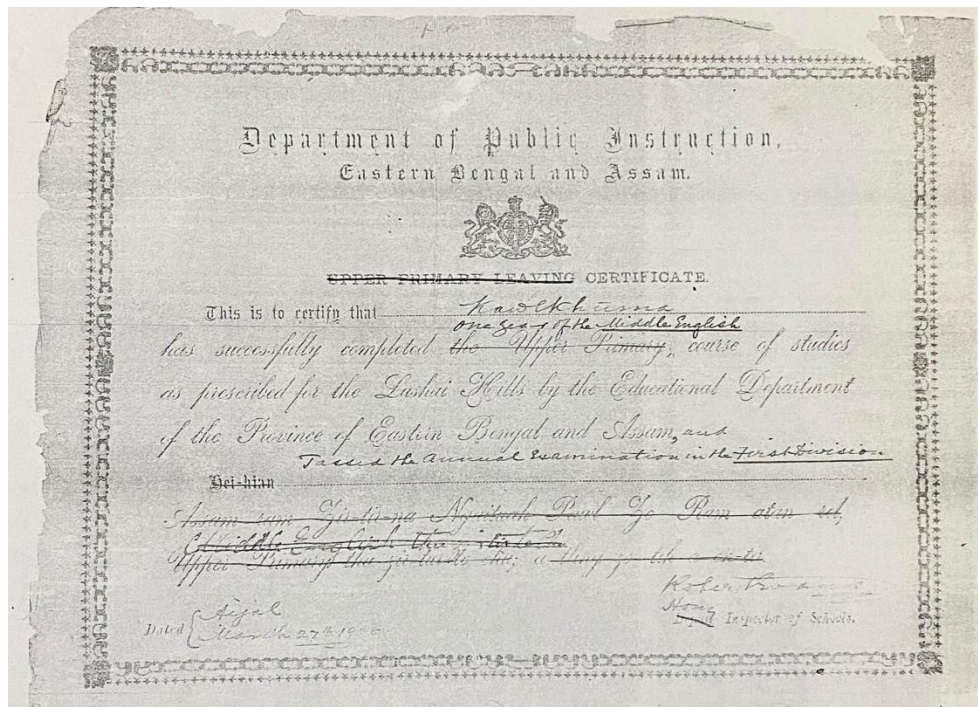 Department of Public Instruction,
Eastern Bengal and Assam.
UPPER PRIMARY LEAVING CERTIFICATE.
This is to certify that Kawlkhuma
one year of the Middle English
has successfully completed the Upper Primary, course of studies
as prescribed for the Lushai Hills by the Educational Department
of the Province of Eastern Bengal and Assam, and
Passed the Annual Examination in the First Division
Hei-hian
Assam ram Zir-tir-na Ram atin
Middle English
Upper Primary
Hony
Deputy Inspector of Schools.
Dated Aijal
March 27th